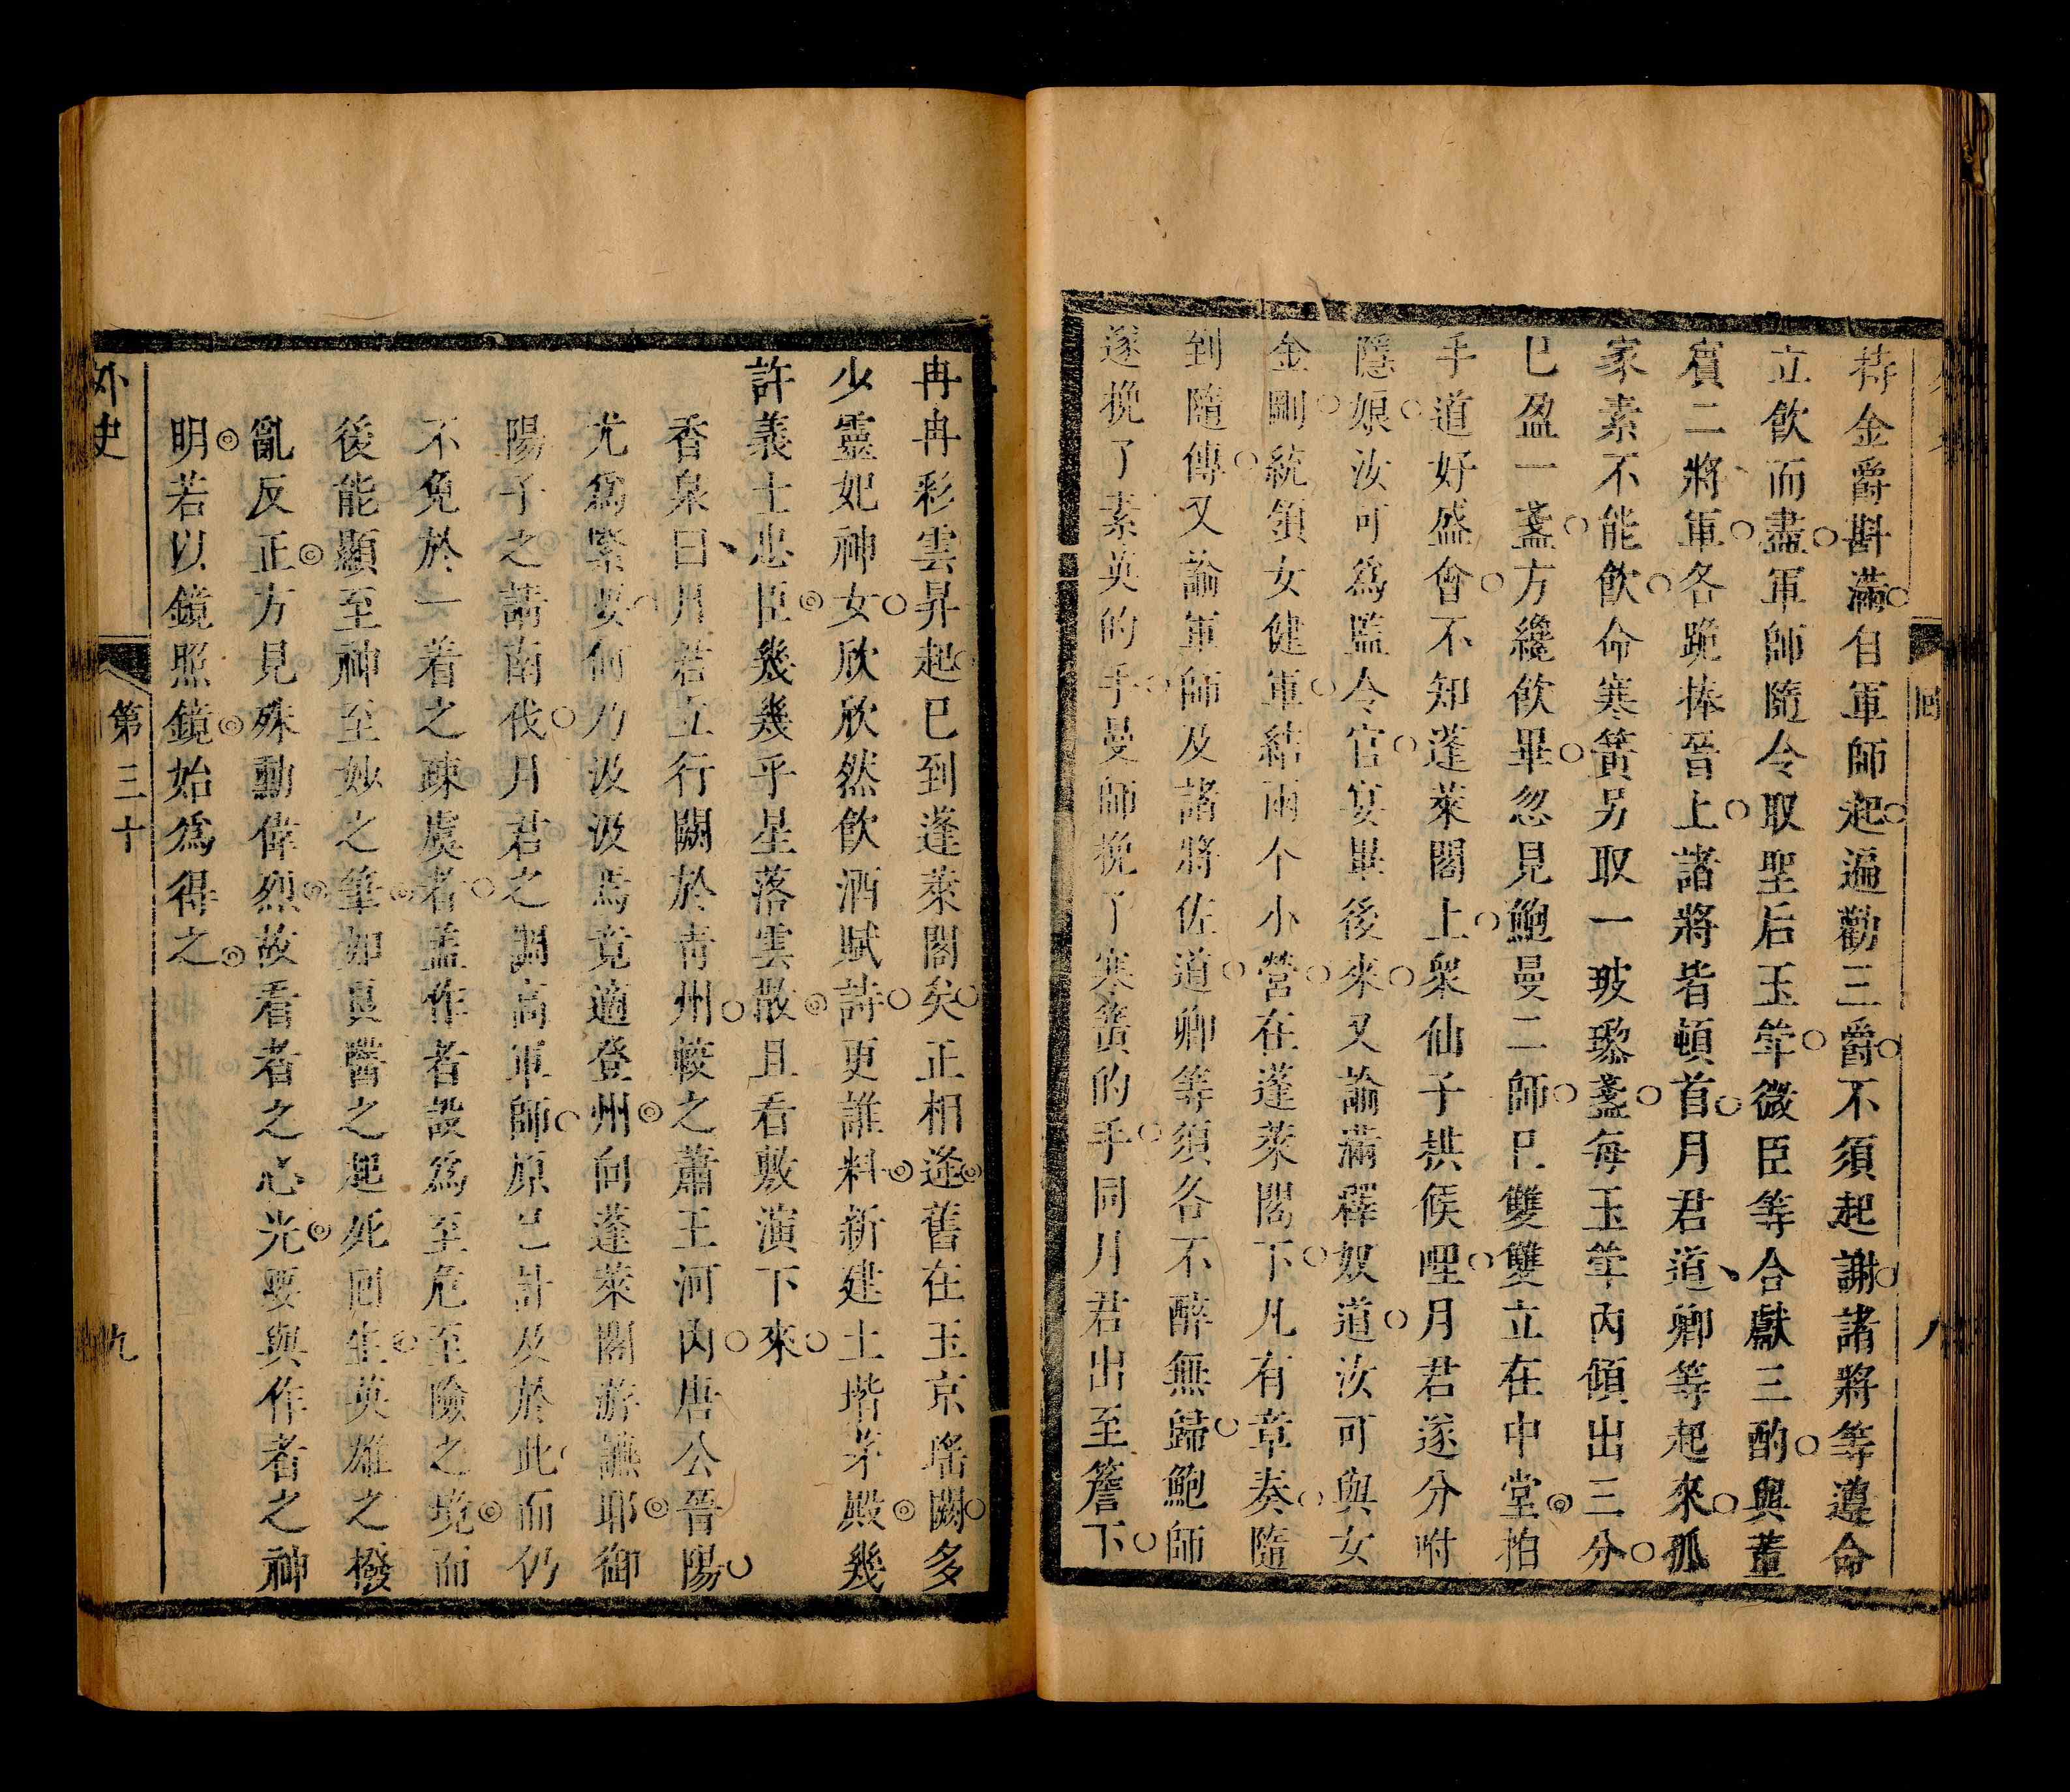 持金爵斟滿自軍師起遍勸三爵不須起謝諸將等遵命
立飲而盡軍師隨令取聖后玉斝微臣等合獻三酌與董
賓二將軍各跪捧晉上諸將皆頓首月君道卿等起來孤
家素不能飲命寒簧另取一玻瓈盞每玉斝內傾出三分
已盈一盞方纔飲畢忽見鮑曼二師已雙雙立在中堂拍
手道好盛會不知蓬萊閣上衆仙子拱候哩月君遂分咐
隱娘汝可爲監令官宴畢後來又諭滿釋奴道汝可與女
金剛統領女健軍結兩个小營在蓬萊閣下凡有章奏隨
到隨傳又諭軍師及諸將佐道卿等須各不醉無歸鮑師
遂挽了素英的手曼師挽了寒簧的手同月君出至簷下
冉冉彩雲昇起已到蓬萊閣矣正相逢舊在玉京瑤闕多
少靈妃神女欣欣然飲酒賦詩更誰料新建土堦茅殿幾
許義士忠臣幾幾乎星落雲散且看敷演下來
香泉曰月君立行闕於青州較之蕭王河內唐公晉陽
尤爲緊要何乃汲汲焉竟適登州向蓬萊閣游讌耶御
陽子之請南伐月君之調高軍師原已計及於此而仍
不免於一着之疎虞者蓋作者設爲至危至險之境而
後能顯至神至妙之筆如良醫之起死回生英雄之撥
亂反正方見殊動偉烈故看者之心光要與作者之神
明若以鏡照鏡始爲得之
外史 第三十 九